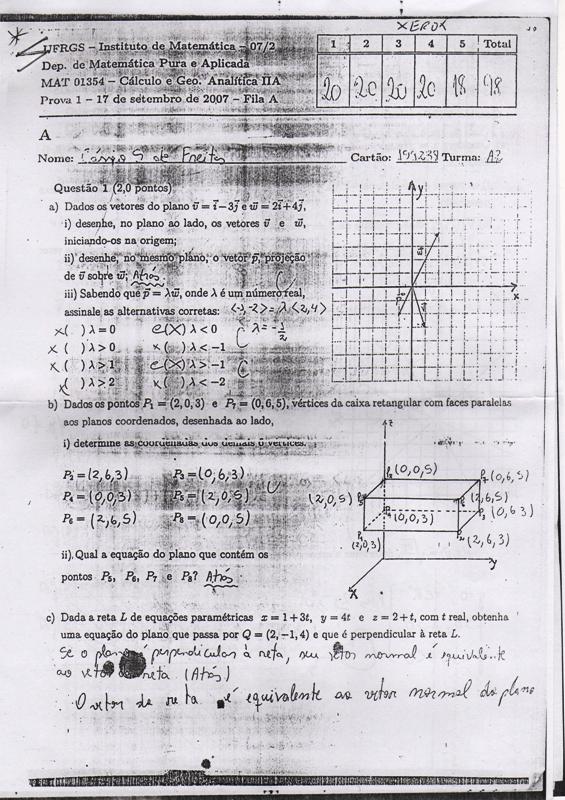 XEROX
UFRGS – Instituto de Matemática – 07/2
Dep. de Matemática Pura e Aplicada
MAT 01354 – Cálculo e Geo. Analítica IIA
Prova 1 – 17 de setembro de 2007 – Fila A
1 2 3 4 5 Total
20 20 20 20 18 98
A
Nome: de Freitas Cartão: Turma: A2
Questão 1 (2,0 pontos)
a) Dados os vetores do plano v⃗ = i⃗ − 3j⃗ e w⃗ = 2i⃗ + 4j⃗,
i) desenhe, no plano ao lado, os vetores v⃗ e w⃗,
iniciando-os na origem;
ii) desenhe, no mesmo plano, o vetor p⃗, projeção
de v⃗ sobre w⃗; Atrás
iii) Sabendo que p⃗ = λw⃗, onde λ é um número real,
assinale as alternativas corretas: <-1,-2> = λ <2,4>
x( ) λ = 0 e(X) λ < 0 C λ = -1/2
x( ) λ > 0 x( ) λ < −1
x( ) λ > 1 e(X) λ > −1 C
x( ) λ > 2 x( ) λ < −2
y
x
b) Dados os pontos P₁ = (2,0,3) e P₇ = (0,6,5), vértices da caixa retangular com faces paralelas
aos planos coordenados, desenhada ao lado,
i) determine as coordenadas dos demais 6 vértices.
P₂ = (2,6,3) P₃ = (0,6,3)
P₄ = (0,0,3) P₅ = (2,0,5)
P₆ = (2,6,5) P₈ = (0,0,5)
z
P₈ (0,0,5)
P₇ (0,6,5)
(2,0,5) P₅
P₆ (2,6,5)
P₄ (0,0,3)
P₃ (0,6,3)
P₁ (2,0,3)
(2,6,3)
x
y
ii) Qual a equação do plano que contém os
pontos P₅, P₆, P₇ e P₈? Atrás
c) Dada a reta L de equações paramétricas x = 1 + 3t, y = 4t e z = 2 + t, com t real, obtenha
uma equação do plano que passa por Q = (2, −1, 4) e que é perpendicular à reta L.
Se o plano é perpendicular à reta, seu vetor normal é equivalente
ao vetor da reta (Atrás)
O vetor da reta é equivalente ao vetor normal do plano